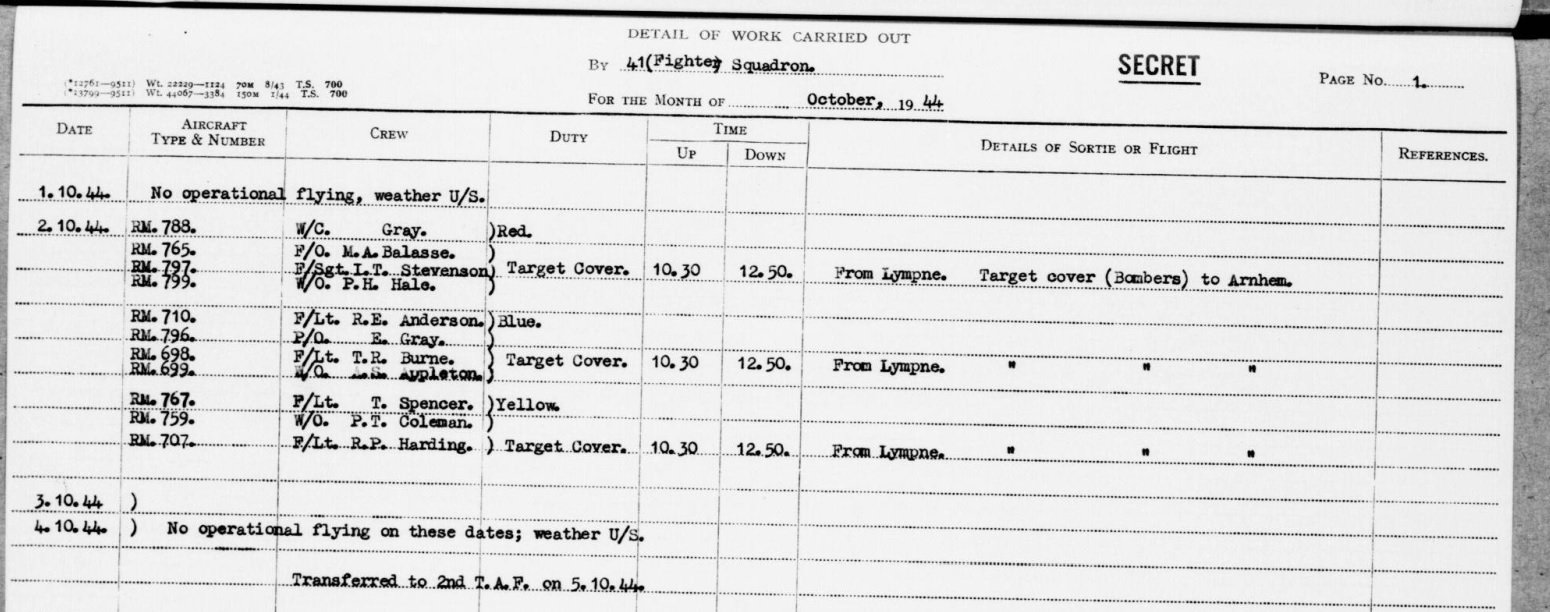 DETAIL OF WORK CARRIED OUT
By 41(Fighter) Squadron.
SECRET
PAGE No. 1.
(*12761—9511) Wt. 22229—1124 70M 8/43 T.S. 700
(*13799—9511) Wt. 44067—3384 150M 1/44 T.S. 700
FOR THE MONTH OF October, 19 44
DATE AIRCRAFT TYPE & NUMBER CREW DUTY TIME UP DOWN DETAILS OF SORTIE OR FLIGHT REFERENCES.
1.10.44. No operational flying, weather U/S.
2.10.44. RM.788. W/C. Gray. )Red.
RM.765. F/O. M.A.Balasse. )
RM.797. F/Sgt.I.T. Stevenson) Target Cover. 10.30 12.50. From Lympne. Target cover (Bombers) to Arnhem.
RM.799. W/O. P.H. Hale. )
RM.710. F/Lt. R.E. Anderson.)Blue.
RM.796. P/O. E. Gray. )
RM.698. F/Lt. T.R. Burne. ) Target Cover. 10.30 12.50. From Lympne. " " "
RM.699. W/O. A.S. Appleton.)
RM.767. F/Lt. T. Spencer. )Yellow.
RM.759. W/O. P.T. Coleman. )
RM.707. F/Lt. R.P. Harding. ) Target Cover. 10.30 12.50. From Lympne. " " "
3.10.44 )
4.10.44. ) No operational flying on these dates; weather U/S.
Transferred to 2nd T.A.F. on 5.10.44.